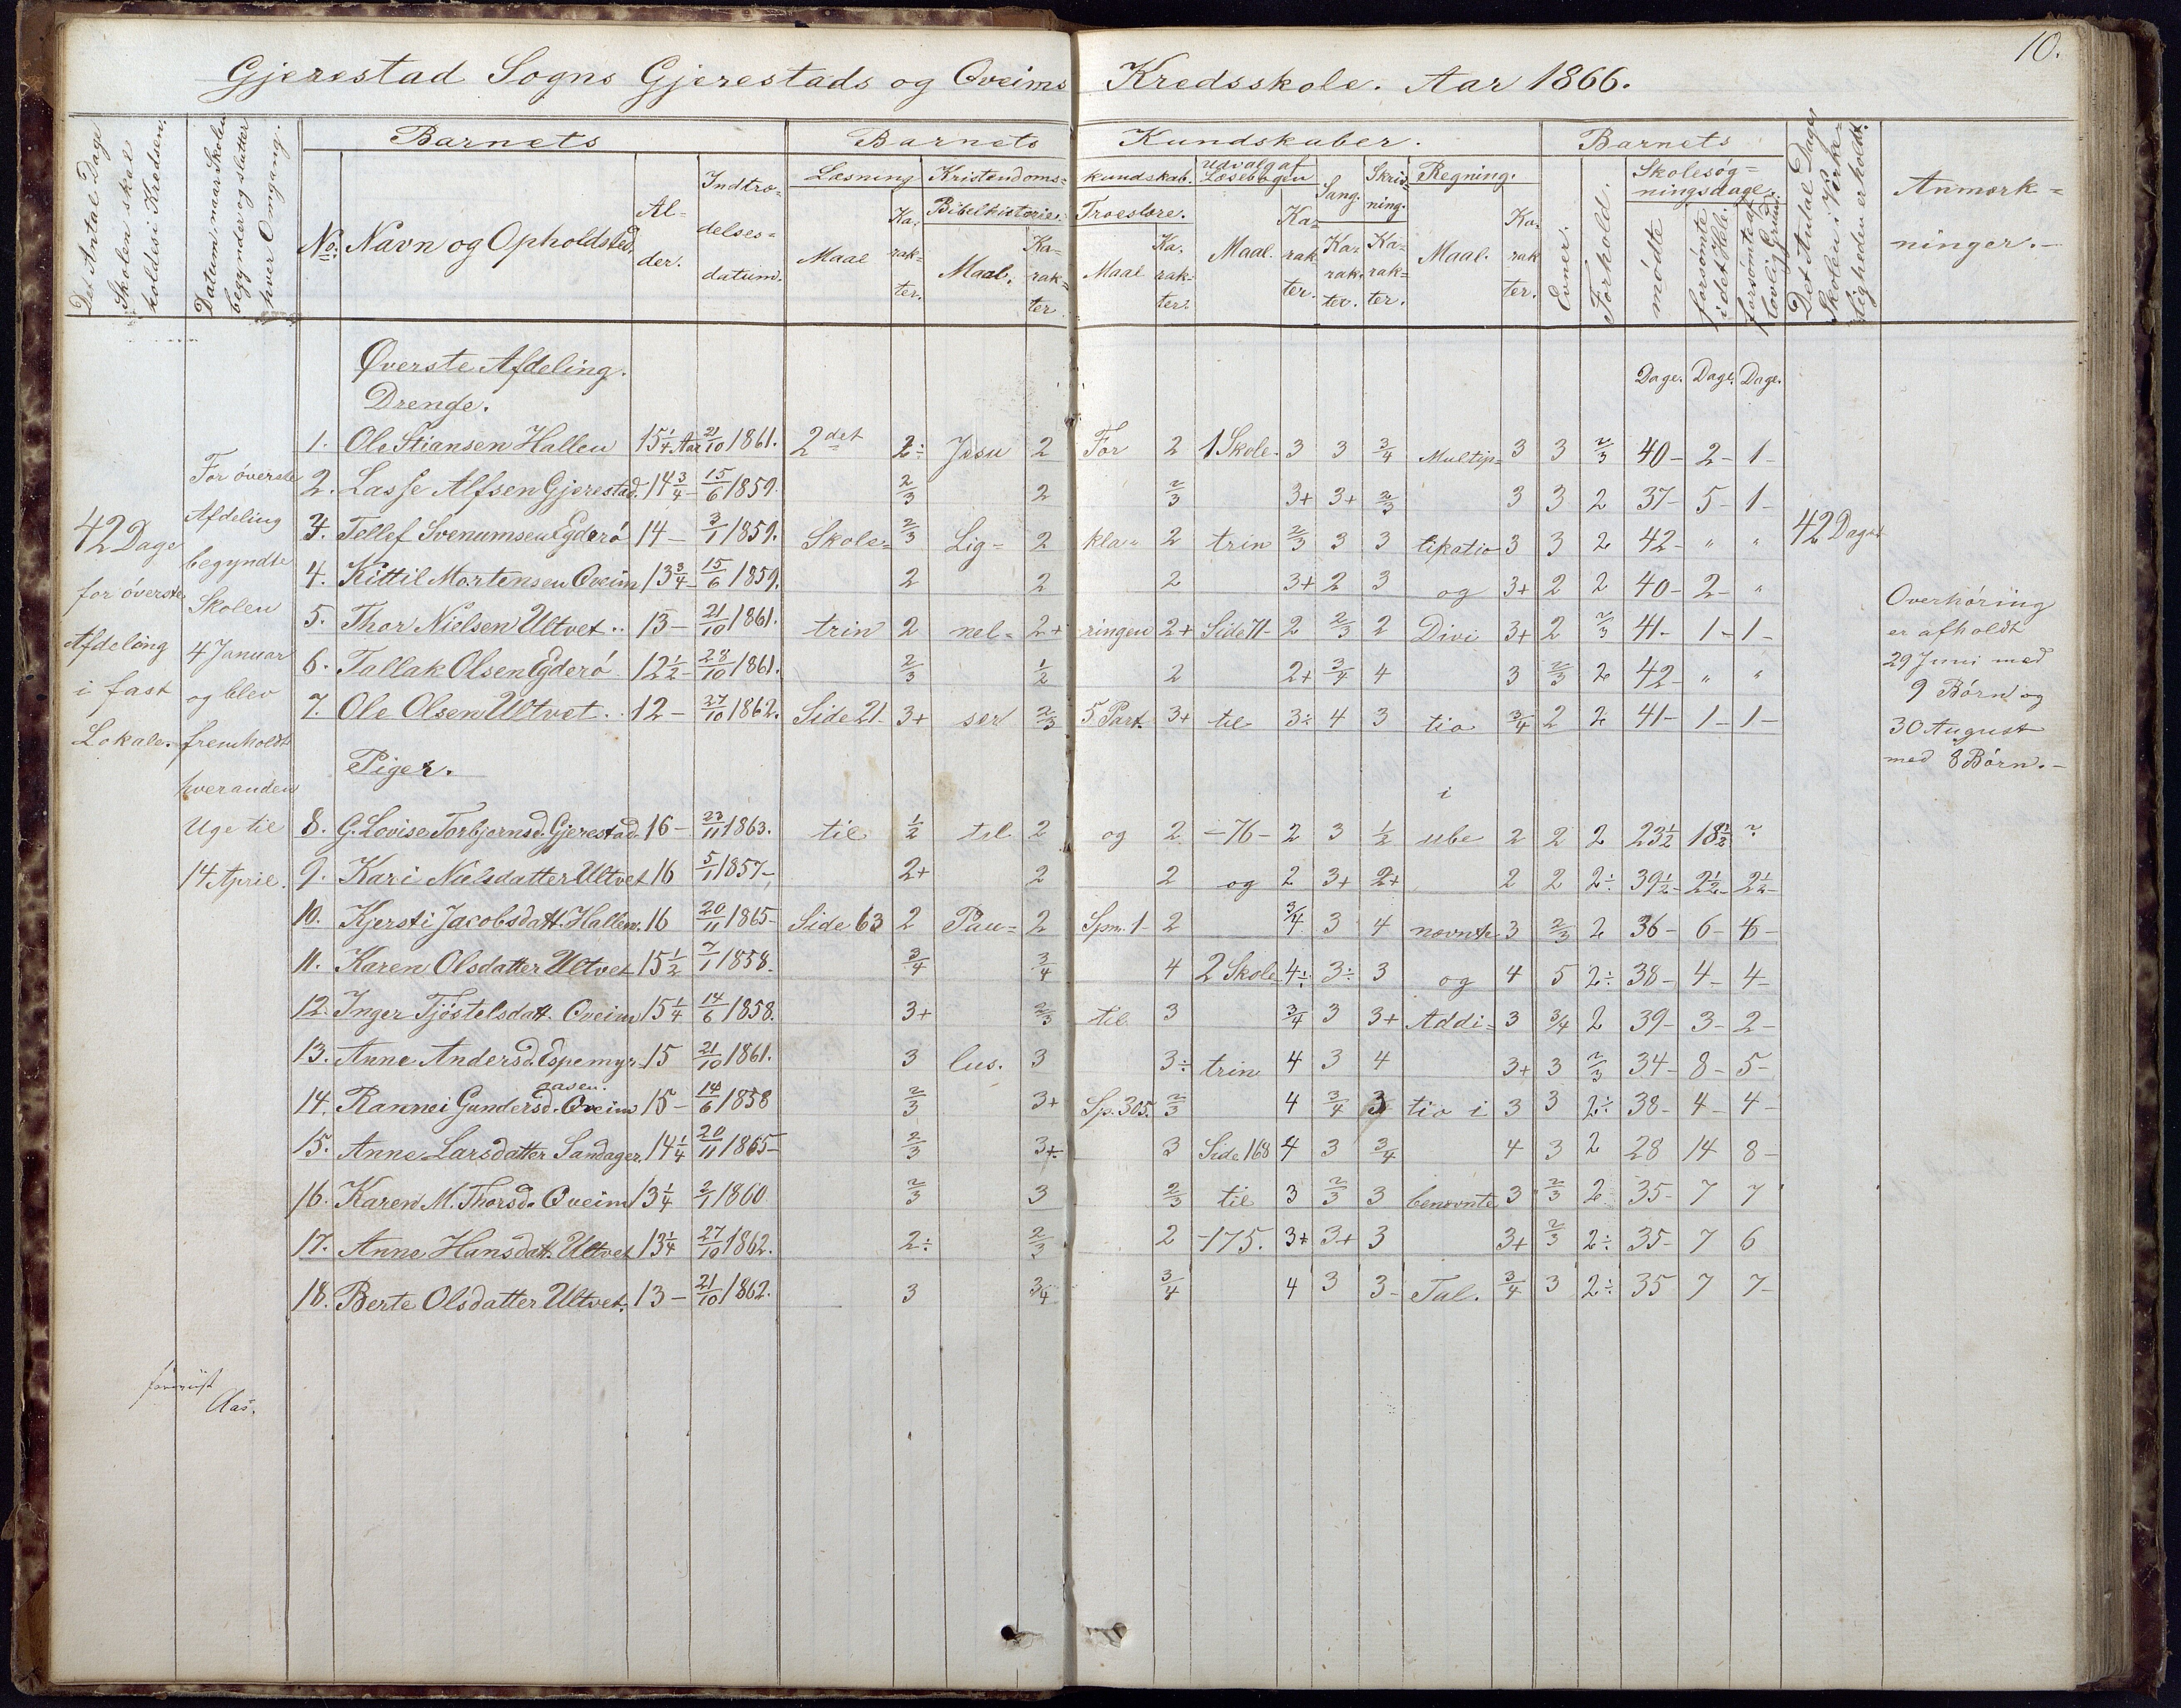 10.
Gjerestad Sogns Gjerestads og Qveims Kredsskole. Aar 1866.
Det Antal Dage Skolen skal holdes i Kredsen.
Datum, naar Skolen begynder og slutter hver Omgang.
Barnets
No. Navn og Opholdsted. Alder. Indtrædelsesdatum.
Barnets Kundskaber.
Læsning Maal Karakter.
Kristendomskundskab.
Bibelhistorie. Maal. Karakter
Troeslære. Maal Karakter.
Udvalg af Læsebogen Maal. Karakter.
Sang. Karakter.
Skrivning. Karakter.
Regning. Maal. Karakter.
Barnets
Evner. Forhold.
Skolesøgningsdage. mødte forsømte i det Hele. forsømte af lovlig Grund.
Det Antal Dage Skolen i Virkeligheden er holdt.
Anmærkninger.
Øverste Afdeling.
Drenge.
Dage. Dage. Dage.
1. Ole Stiansen Hallen 15 1/4 Aar 21/10 1861. 2det 2÷ Jesu 2 For 2 1 Skole- 3 3 3/4 Multip- 3 3 2/3 40- 2- 1-
2. Lasse Alfsen Gjerestad. 14 3/4- 15/6 1859. 2/3 2 2/3 3+ 3+ 2/3 3 3 2 37- 5- 1-
3. Tellef Svenumsen Egderø 14- 3/1 1859. Skole= 2/3 Lig= 2 kla= 2 trin 2/3 3 3 likatio 3 3 2 42- " "
4. Kittil Mortensen Qveim 13 3/4- 15/6 1859. 2 2 2 3+ 2 3 og 3+ 2 2 40- 2- "
5. Thor Nielsen Ultvet.. 13- 21/10 1861. trin 2 nel= 2+ ringen 2+ Side 71- 2 2/3 2 Divi 3+ 2 2/3 41- 1- 1-
6. Tallak Olsen Egderø 12 1/2- 28/10 1861. 2/3 1/2 2 2+ 3/4 4 3 2/3 2 42- " "
7. Ole Olsen Ultvet.. 12- 27/10 1862. Side 21- 3+ ser 2/3 5 Part. 3+ til 3÷ 4 3 tio 3/4 2 2 41- 1- 1-
Piger.
i
8. G. Lovise Torbjørnsd. Gjerestad 16- 23/11 1863. til 1/2 til 2 og 2 -76- 2 3 1/2 ube 2 2 2 23 1/2 18 1/2 ?
9. Kari Nielsdatter Ultvet 16 5/1 1857-, 2+ 2 2 og 2 3+ 2+ 2 2 2÷ 39 1/2- 2 1/2- 2 1/2-
10. Kjersti Jacobsdatt. Hallen. 16 20/11 1865- Side 63 2 Pau= 2 Spm. 1- 2 3/4 3 4 nævnte 3 2/3 2 36- 6- 6-
11. Karen Olsdatter Ultvet 15 1/2 7/1 1858. 3/4 3/4 4 2 Skole= 4÷ 3÷ 3 og 4 5 2÷ 38- 4- 4-
12. Inger Tjøstelsdatt. Qveim 15 1/4 14/6 1858. 3+ 2/3 til 3 3/4 3 3+ Addi= 3 3/4 2 39- 3- 2-
13. Anne Andersd. Espemyr- 15 21/10 1861. 3 lus. 3 3÷ trin 4 3 4 3+ 3 2/3 34- 8- 5-
aasen.
14. Rannei Gundersd. Qveim 15- 14/6 1858 2/3 3+ Sp. 305. 2/3 4 3/4 3 tio i 3 3 2÷ 38- 4- 4-
15. Anne Larsdatter Sandager. 14 1/4 20/11 1865- 2/3 3÷ 3 Side 168 4 3 3/4 4 3 2 28 14 8-
16. Karen M. Thorsd. Qveim 13 1/4 2/1 1860 2/3 3 2/3 til 3 2/3 3 benævnte 3 2/3 2 35- 7 7
17. Anne Hansdatt. Ultvet 13 1/4 27/10 1862. 2÷ 2/3 2 -175. 3+ 3+ 3 3+ 2/3 2÷ 35- 7 6
18. Berte Olsdatter Ultvet. 13- 21/10 1862. 3 3/4 3/4 4 3 3- Tal. 3/4 3 2÷ 35 7 7-
42 Dage
for øverste
Afdeling
i fast
Lokale.
For øverste
Afdeling
begyndte
Skolen
4 Januar
og blev
fremholdt
hveranden
Uge til
14 April.
42 Dage
Overhøring
er afholdt
29 Juni med
9 Børn og
30 August
med 8 Børn.-
Aas.